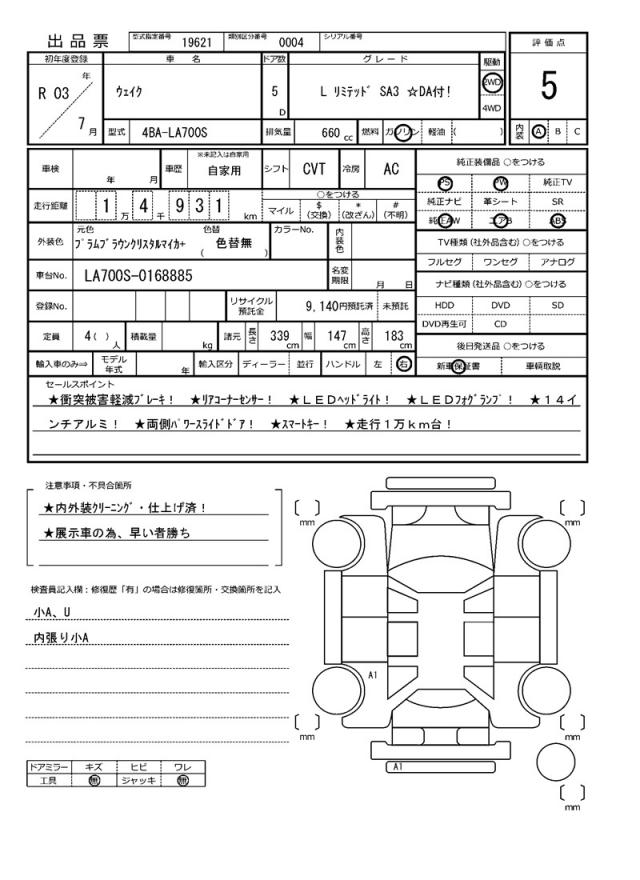 出品票 型式指定番号 19621 類別区分番号 0004 シリアル番号
評価点
5
内装 A B C
初年度登録 車名 ドア数 グレード 駆動
R 03 年 7 月
ウェイク 5 D L リミテッド SA3 ☆DA付! 2WD 4WD
型式 4BA-LA700S 排気量 660 cc 燃料 ガソリン 軽油 ( )
車検 年 月 車歴 ※未記入は自家用 自家用 シフト CVT 冷房 AC
走行距離 1 万 4 千 9 3 1 km ○をつける マイル $ (交換) * (改ざん) # (不明)
外装色 元色 プラムブラウンクリスタルマイカ+ 色替 ( 色替無 ) カラーNo. 内装色
車台No. LA700S-0168885 名変期限 月 日
登録No. リサイクル預託金 9,140円預託済 未預託
定員 4( ) 人 積載量 kg 諸元 長さ 339 cm 幅 147 cm 高さ 183 cm
輸入車のみ⇒ モデル年式 年 輸入区分 ディーラー 並行 ハンドル 左 右
純正装備品 ○をつける
PS PW 純正TV
純正ナビ 革シート SR
純正AW エアB ABS
TV種類(社外品含む)○をつける
フルセグ ワンセグ アナログ
ナビ種類(社外品含む)○をつける
HDD DVD SD
DVD再生可 CD
後日発送品 ○をつける
新車保証書 車輌取説
セールスポイント
★衝突被害軽減ブレーキ! ★リアコーナーセンサー! ★LEDヘッドライト! ★LEDフォグランプ! ★14イ
ンチアルミ! ★両側パワースライドドア! ★スマートキー! ★走行1万km台!
注意事項・不具合箇所
★内外装クリーニング・仕上げ済!
★展示車の為、早い者勝ち
検査員記入欄:修復歴「有」の場合は修復箇所・交換箇所を記入
小A、U
内張り小A
ドアミラー キズ ヒビ ワレ
工具 無 ジャッキ 無
[ ] mm
[ ] mm
A1
[ ] mm
[ ] mm
A1
[ ] mm